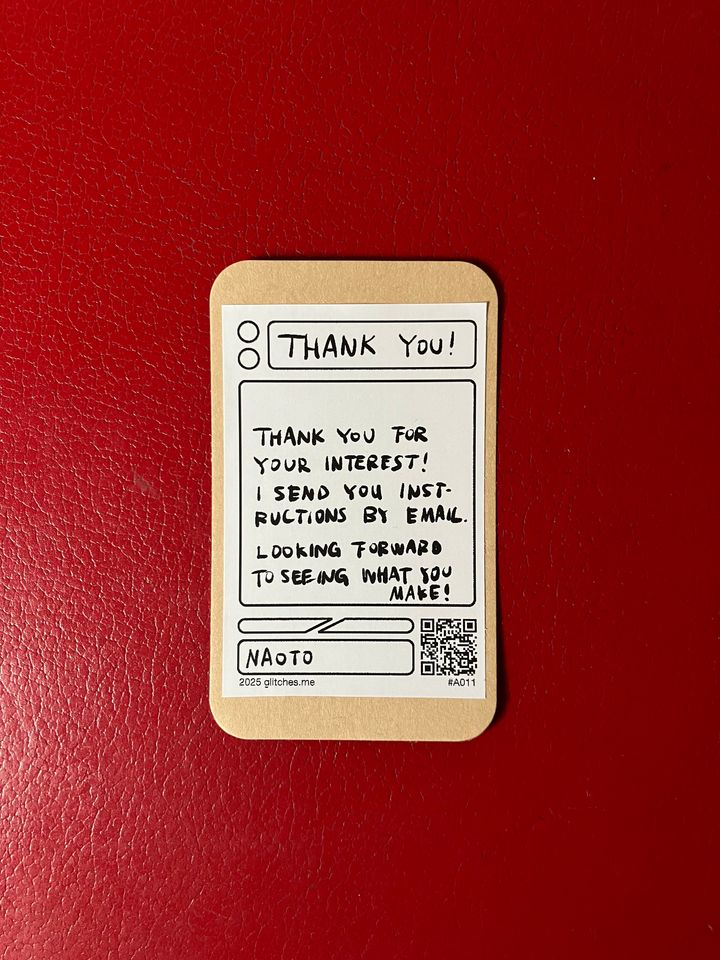 THANK YOU!
THANK YOU FOR
YOUR INTEREST!
I SEND YOU INST-
RUCTIONS BY EMAIL.
LOOKING FORWARD
TO SEEING WHAT YOU
MAKE!
NAOTO
2025 glitches.me
#A011